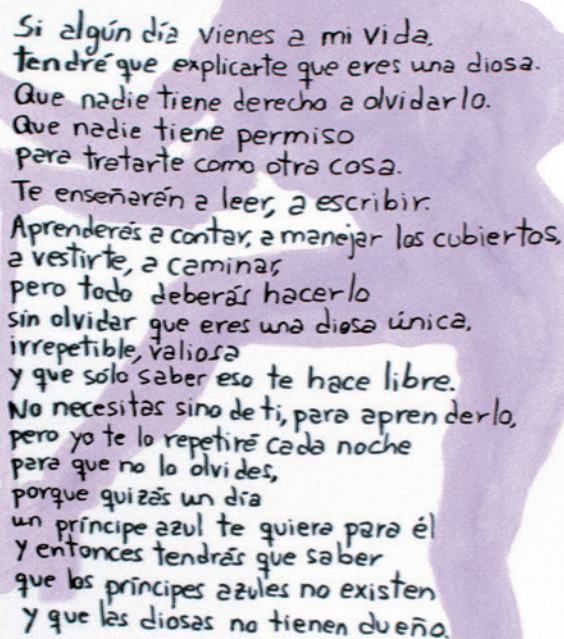 Si algún día vienes a mi vida,
tendré que explicarte que eres una diosa.
Que nadie tiene derecho a olvidarlo.
Que nadie tiene permiso
para tratarte como otra cosa.
Te enseñarán a leer, a escribir.
Aprenderás a contar, a manejar los cubiertos,
a vestirte, a caminar,
pero todo deberás hacerlo
sin olvidar que eres una diosa única,
irrepetible, valiosa
y que sólo saber eso te hace libre.
No necesitas sino de ti, para aprenderlo,
pero yo te lo repetiré cada noche
para que no lo olvides,
porque quizás un día
un príncipe azul te quiera para él
y entonces tendrás que saber
que los príncipes azules no existen
y que las diosas no tienen dueño.